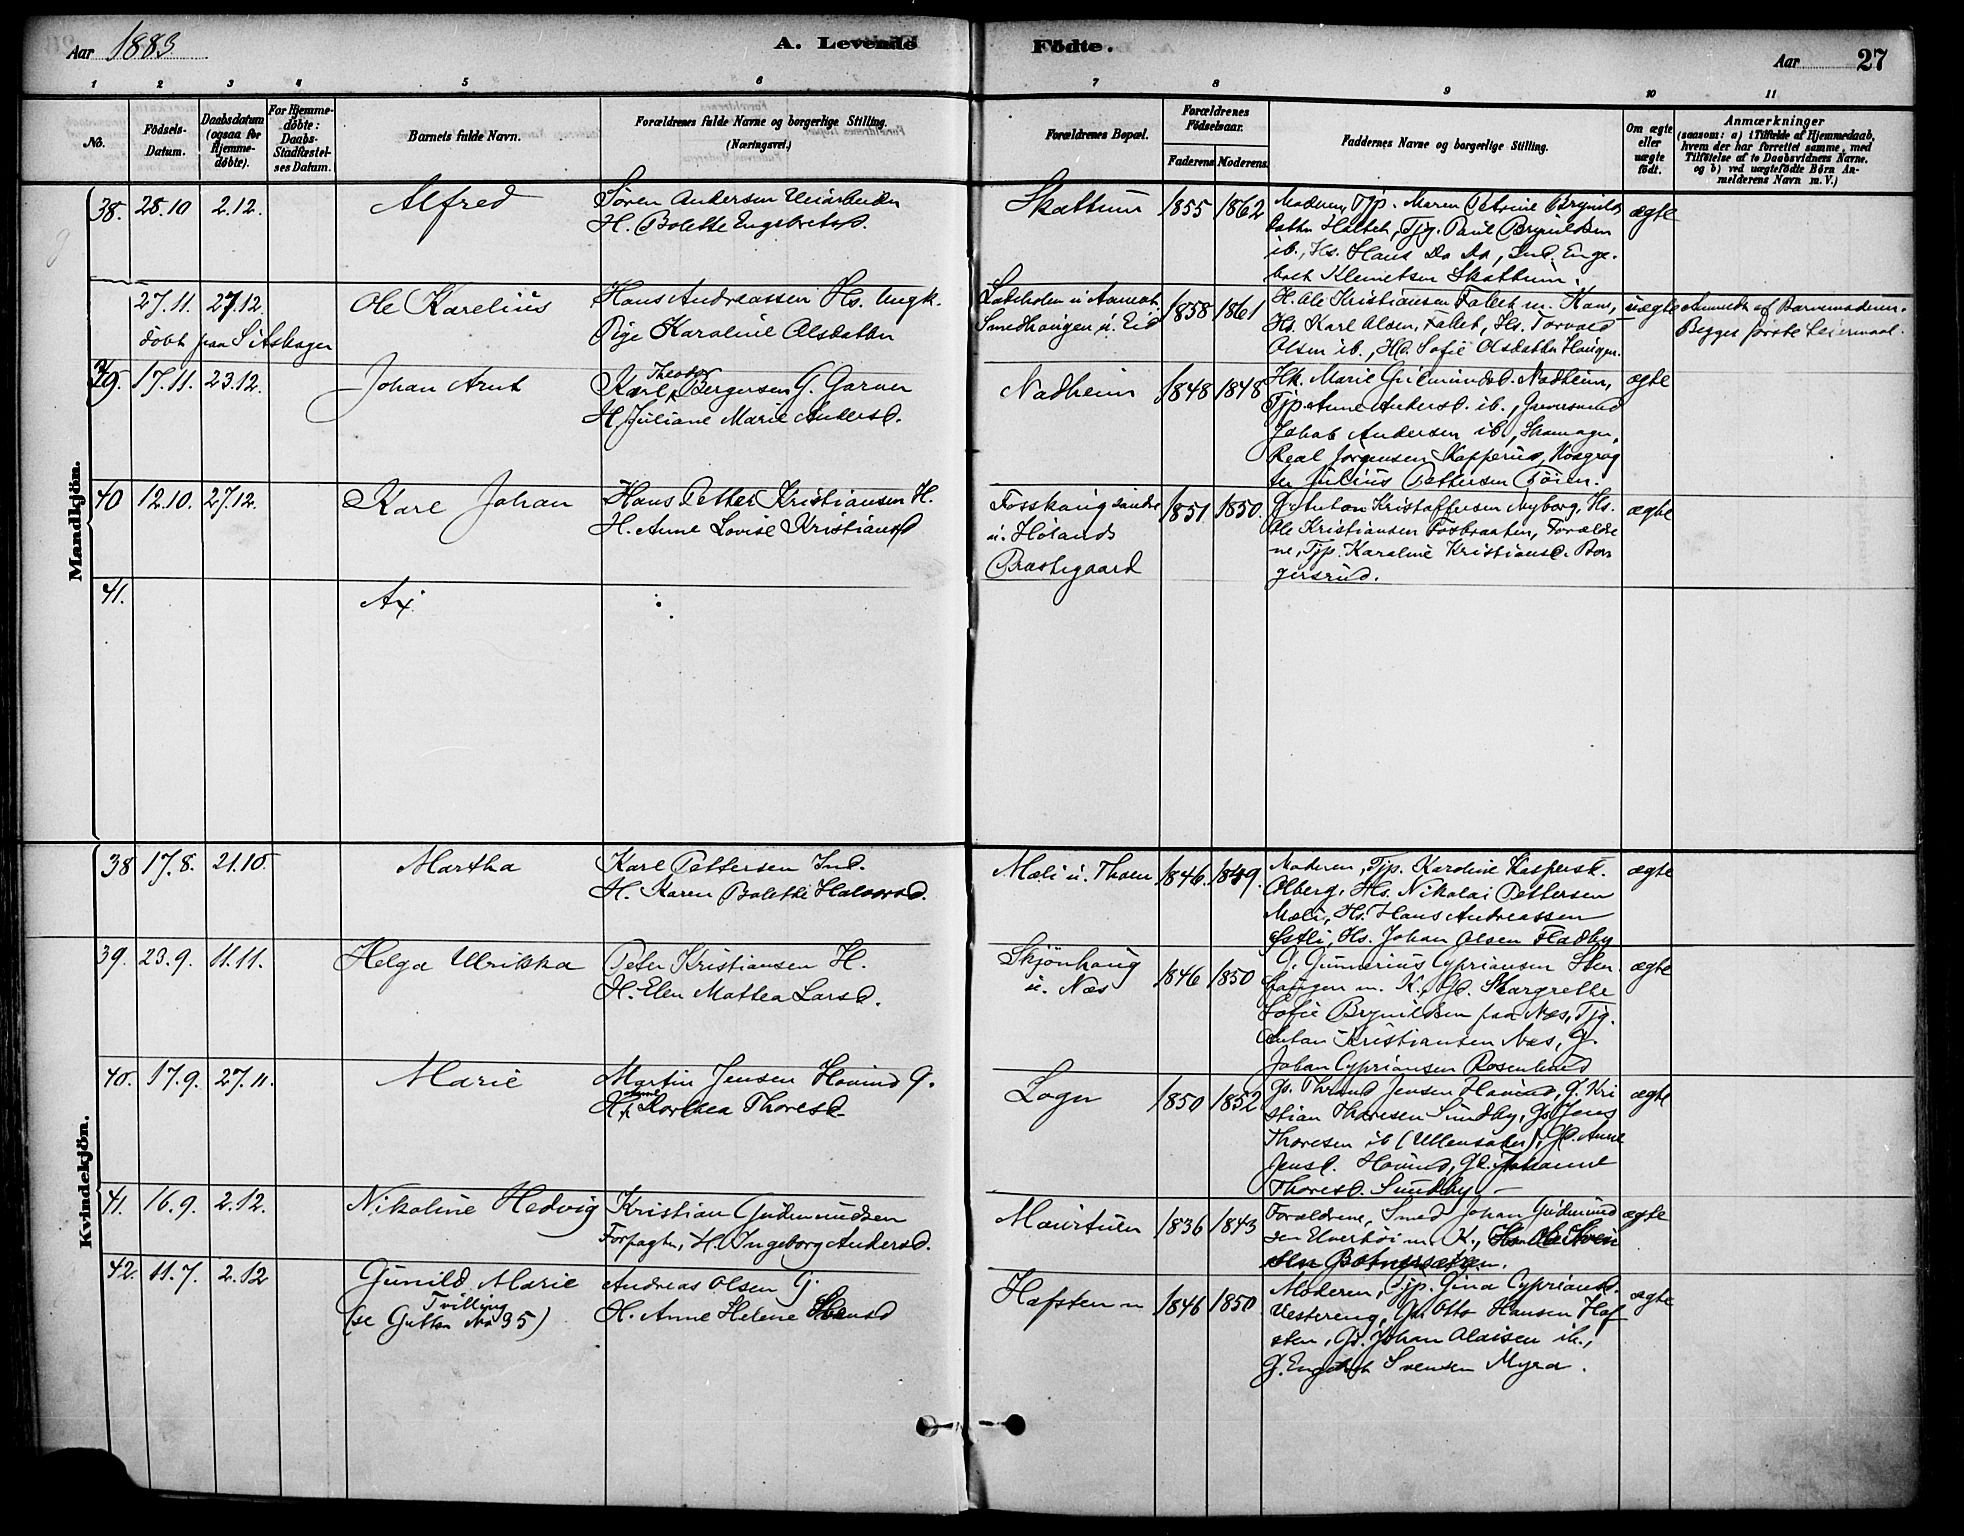 Aar 1883
A. Levende Födte.
Aar 27
1 2 3 4 5 6 7 8 9 10 11
No.
Födsels-Datum.
Daabsdatum (ogsaa for Hjemme-döbte).
For Hjemme-döbte: Daabs-Stadfæstel-ses Datum.
Barnets fulde Navn.
Forældrenes fulde Navne og borgerlige Stilling.
(Næringsvei.)
Forældrenes Bopæl.
Forældrenes Födselsaar.
Faderens. Moderens.
Faddernes Navne og borgerlige Stilling.
Om ægte eller uægte födt.
Anmærkninger
(saasom: a) i Tilfælde af Hjemmedaab,
hvem der har forrettet samme, med
Tilföielse af to Daabsvidners Navne,
og b) ved uægtefödte Börn An-
melderens Navn m. V.)
Mandkjön.
38. 28.10 2.12. Alfred
Søren Andersen Veiarbeider
H. Bolette Engebretsd.
Skattum 1855 1862
Moderen, Tjp. Maren Petrine Brynilds
datter Haltet, Tjg. Paul Brynildsen
ib., Hs. Hans Do Do, Ind. Enge-
bret Klemetsen Skattum.
ægte
27.11. 27.12. Ole Karelius
döbt paa S. Askager
Hans Andreassen Hs. Ungk.
Pige Karoline Olsdatter
Smedhaugen u. Eid 1858 1861
H. Ole Kristiansen Fallet m. Kone,
Hs. Karl Olsen, Fallet, Hs. Torvald
Olsen ib., Hd. Sofie Olsdatter Haugen.
uægte
Anmeldt af Barnemoderen.
Begges første Leiermaal.
39. 17.11. 23.12. Johan Arnt
Karl Theodor Bergersen G. Garver
H. Juliane Marie Andersd.
Nadheim 1848 1848
Hk. Marie Gulmundsd. Nadheim,
Tjp. Anne Andersd. ib., Garversvend
Jakob Andersen ib., Skomager
Real Jørgensen Kopperud,
Julius Pettersen Töien.
ægte
40 12.10. 27.12. Karl Johan
Hans Petter Kristiansen H.
H. Anne Lovise Kristiansd
Fosshaug søndre
u. Hølands
Præstegaard
1851 1850.
G. Anton Kristoffersen Nyborg, Hs.
Ole Kristiansen Fosbraaten, Forældre
ne, Tjp. Karoline Kristiansd. Bør
gersrud.
ægte
41.
Kvindekjön.
38 17.8. 21.10. Martha
Karl Pettersen Ind.
H. Karen Bolette Halvorsd.
Mæli u. Thoen 1846. 1849.
Moderen, Tjp. Karoline Kaspersd.
Olberg, Hs. Nikolai Pettersen
Mæli, Hs. Hans Andreassen
Østli, Hs. Johan Olsen Fladby
ægte
39. 23.9. 11.11. Helga Ulrikka
Peter Kristiansen H.
H. Elen Mathea Larsd.
Skjönhaug
u. Næs
1846 1850
G. Gunnerius Cypriansen Sten
haugen m. K., Gd. Margrethe
Sofie Brynildsen paa Næs, Tjg.
Anton Kristiansen Næs, G.
Johan Cypriansen Rosenlund
ægte
40. 17.9. 27.11. Marie
Martin Jensen Hovind G.
H. Anne Dorthea Thoresd.
Logn 1850 1852
Gs. Thrond Jensen Hovind, G. Kri
stian Thoresen Sundby, Gs. Jens
Thoresen ib (Ullensaker), Gd. Anne
Jensd. Hovind, Gd. Johanne
Thoresd. Sundby.
ægte
41. 16.9. 2.12. Nikoline Hedvig
Kristian Gudmundsen
Forpagter, H. Ingeborg Andersd.
Maurtuen 1836 1843
Forældrene, Smed Johan Gudmund
sen Elverhöi m. K.,
ægte
42. 11.7. 2.12 Gunild Marie
Tvilling
(se Gutten No 35)
Andreas Olsen G.
H. Anne Helene Svensd
Hafsten 1846 1850
Moderen, Tjp. Gina Cypriansd.
Vestereng, Gs. Otto Hansen Haf
sten, Gs. Johan Olaisen ib.,
G. Engebret Svensen Myra.
ægte